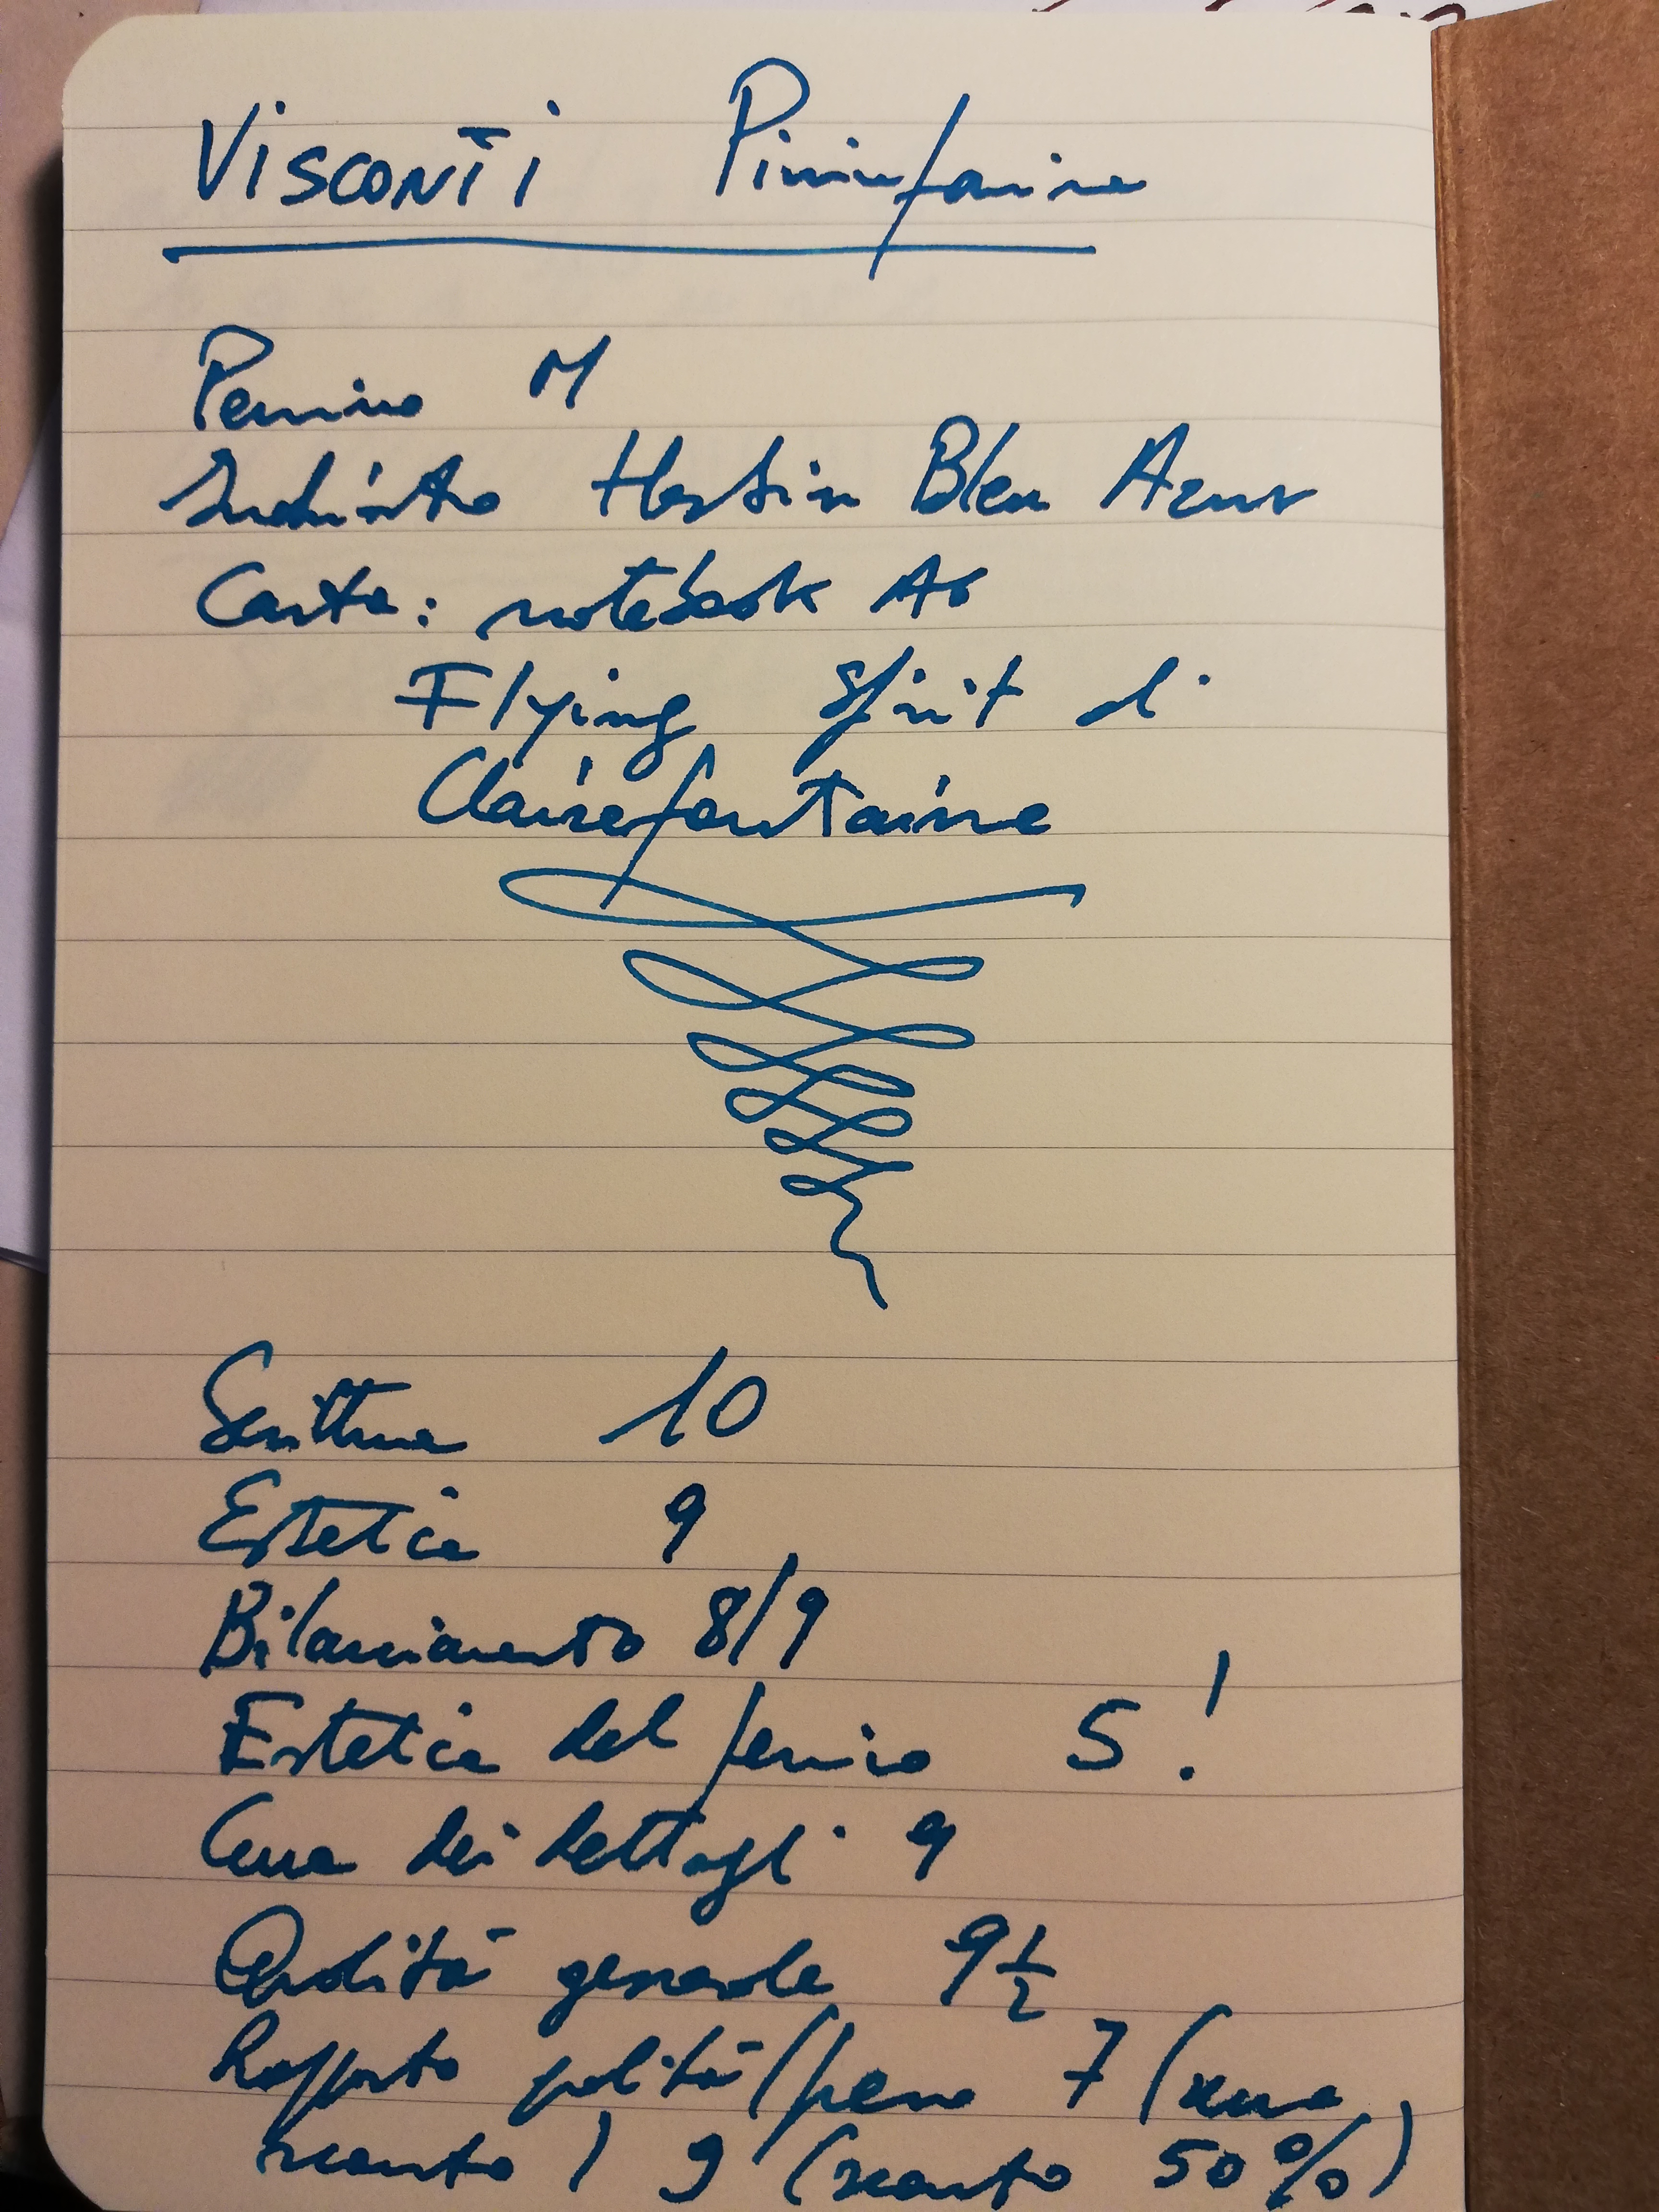 Visconti Pininfarina
Pennino M
Inchiostro Herbin Bleu Azur
Carta: notebook A6
Flying Spirit di
Clairefontaine
Scrittura 10
Estetica 9
Bilanciamento 8/9
Estetica del pennino 5!
Cura dei dettagli 9
Qualità generale 9 1/2
Rapporto qualità/prezzo 7 (senza
sconto) 9 (sconto 50%)